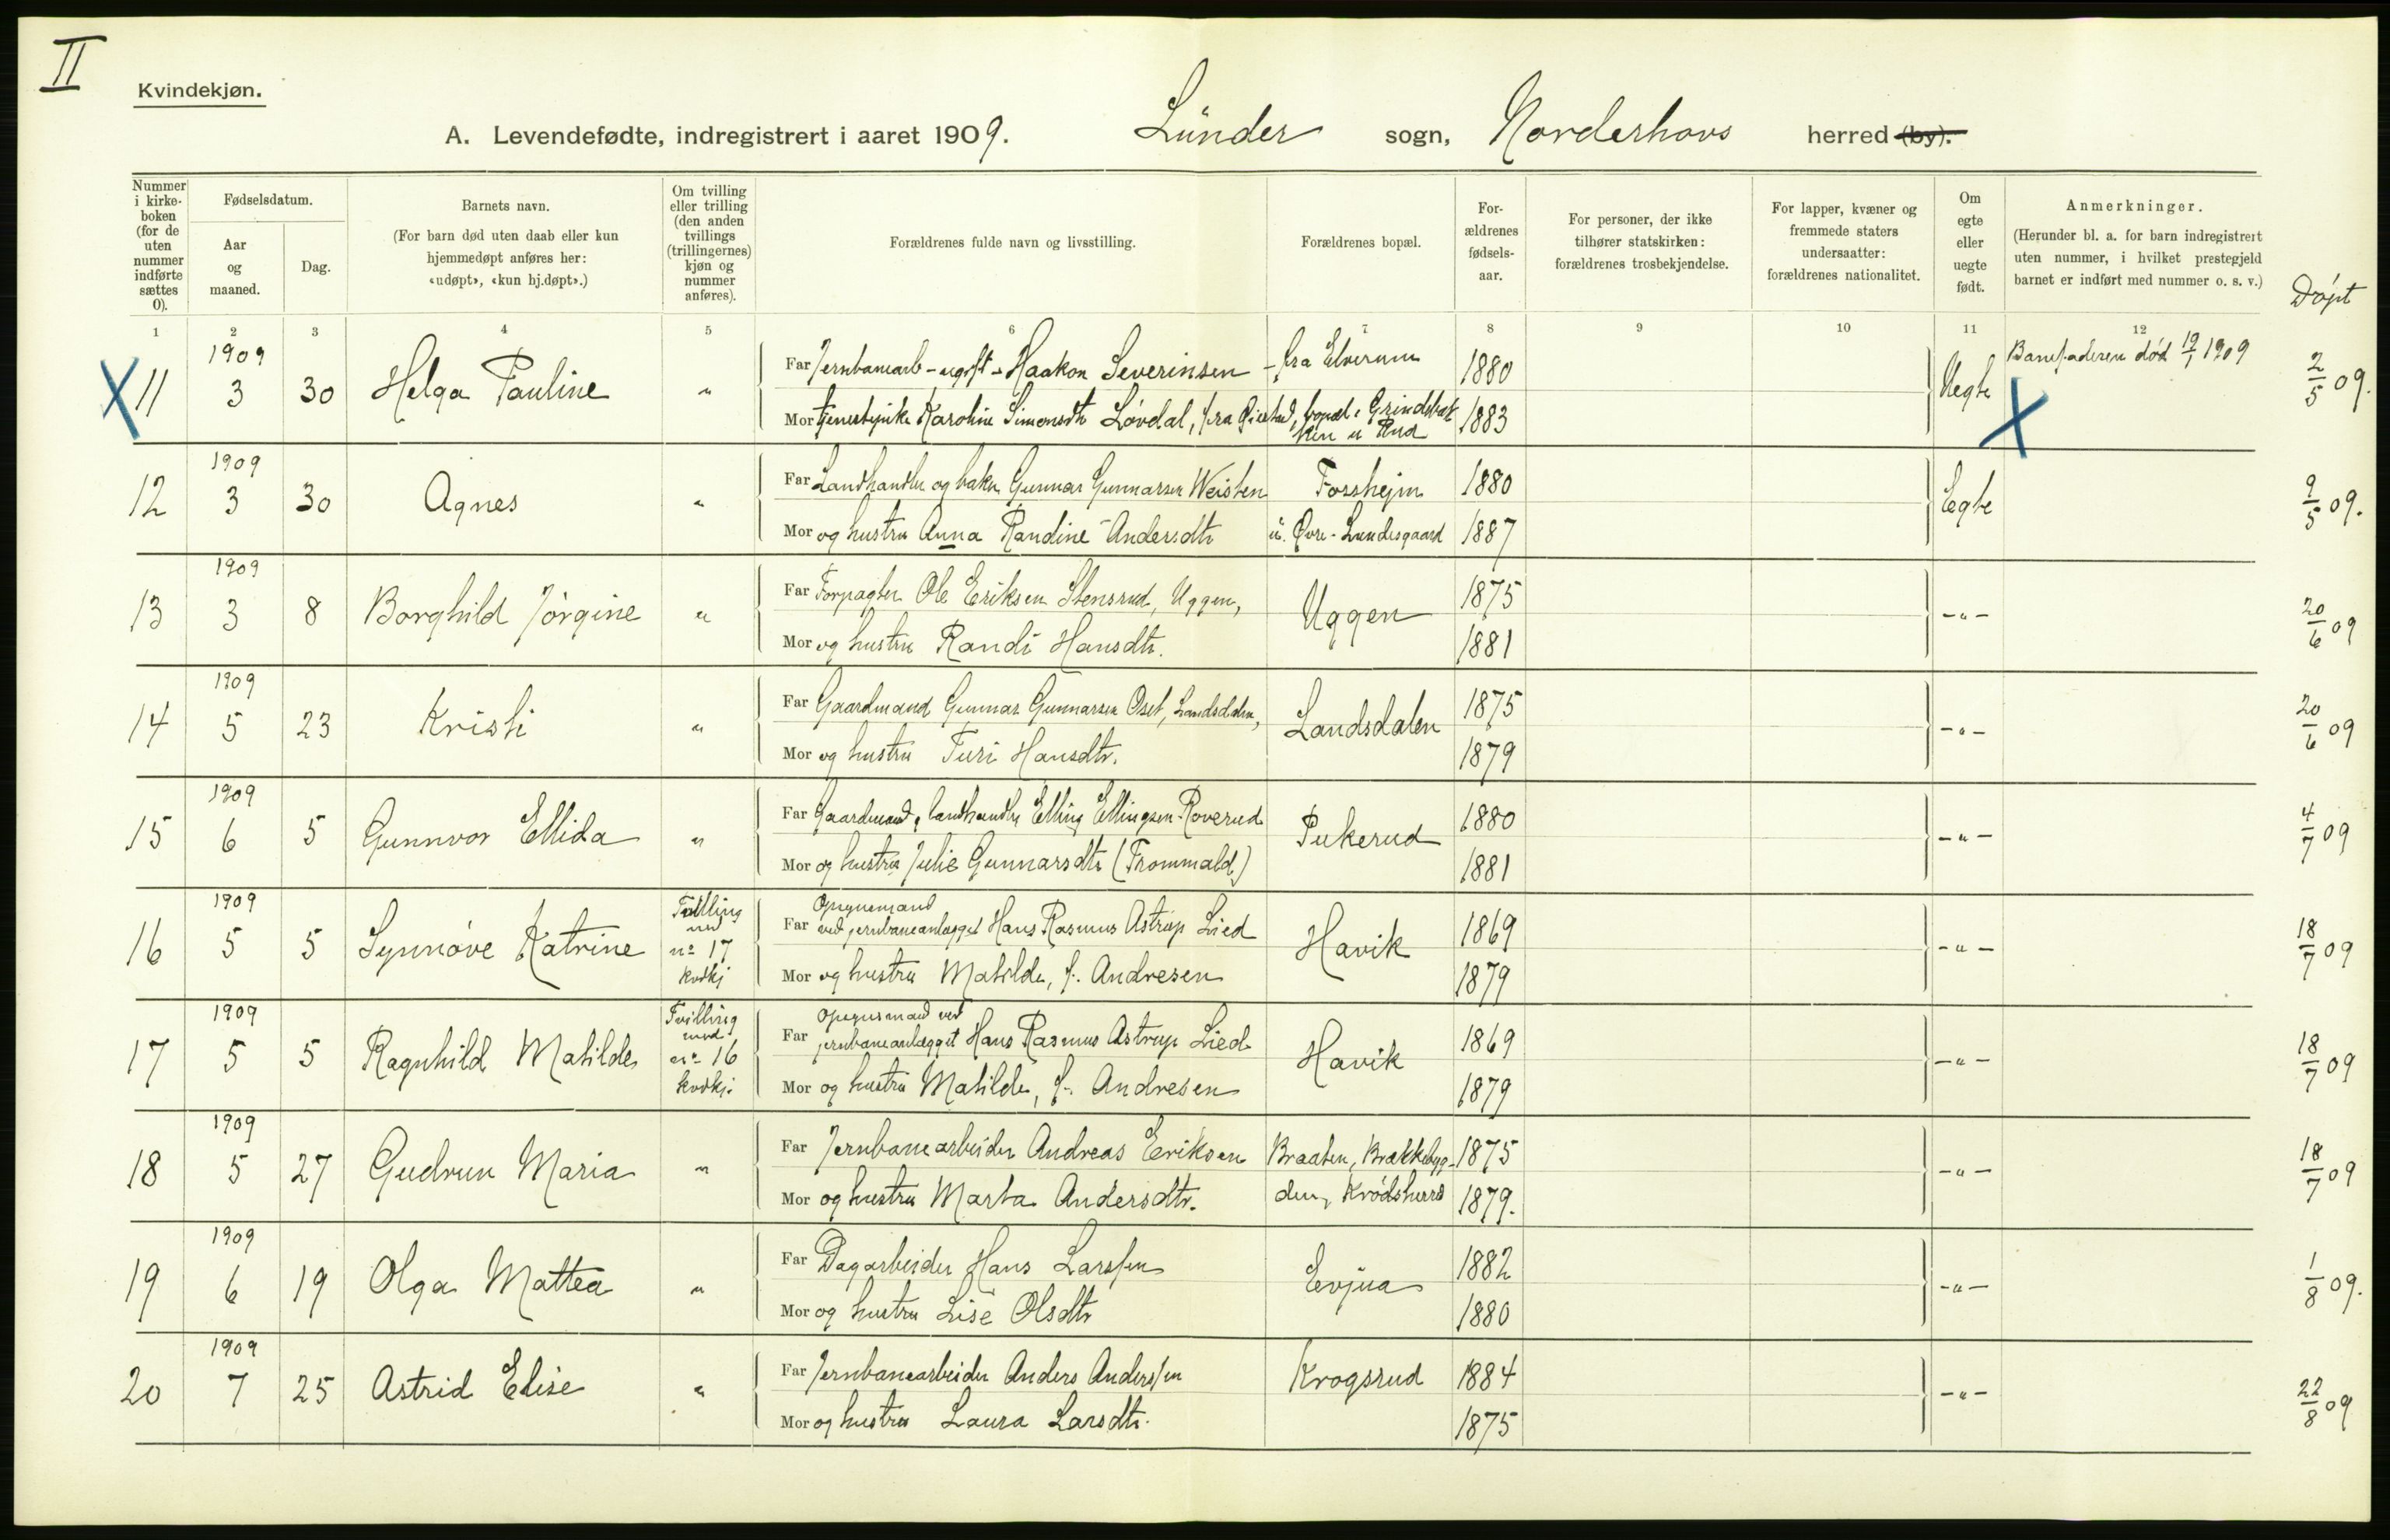 II
Kvindekjøn.
A. Levendefødte, indregistrert i aaret 1909. Lunder sogn, Norderhovs herred (by).
Nummer i kirke- boken (for de uten nummer indførte sættes 0).
Fødselsdatum.
Aar og maaned.
Dag.
Barnets navn.
(For barn død uten daab eller kun hjemmedøpt anføres her: «udøpt», «kun hj.døpt».)
Om tvilling eller trilling (den anden tvillings (trillingernes) kjøn og nummer anføres).
Forældrenes fulde navn og livsstilling.
Forældrenes bopæl.
For- ældrenes fødsels- aar.
For personer, der ikke tilhører statskirken: forældrenes trosbekjendelse.
For lapper, kvæner og fremmede staters undersaatter: forældrenes nationalitet.
Om egte eller uegte født.
Anmerkninger.
(Herunder bl. a. for barn indregistrert uten nummer, i hvilket prestegjeld barnet er indført med nummer o. s. v.)
Døpt
1 2 3 4 5 6 7 8 9 10 11 12
1909
X 11 3 30 Helga Pauline „ Far Jernbanearb - ugift - Haakon Severinsen - fra Elverum 1880 Uegte Barnefaderen død 19/1 1909 2/5 09.
Mor tjenestepike Karoline Simonsdtr Løvdal, fra bopæl: Grindsbæk 1883 X
ken u Rud
1909
12 3 30 Agnes „ Far Landhandler og baker Gunnar Gunnarsen Weisten Forsheim 1880 Egte 9/5 09.
Mor og hustru Anna Randine Andersdtr u. Øvre-Lundesgaard 1887
1909
13 3 8 Borghild Jørgine „ Far Forpagter Ole Eriksen Stensrud, Uggen, Uggen 1875 -„- 20/6 09
Mor og hustru Randi Hansdtr. 1881
1909
14 5 23 Kristi „ Far Gaardmand Gunnar Gunnarsen Oset, Landsdalen, Landsdalen 1875 -„- 20/6 09
Mor og hustru Turi Hansdtr. 1879
1909
15 6 5 Gunnvor Ellida „ Far Gaardmand, landhandler Elling Ellingsen Roverud Pukerud 1880 -„- 4/7 09
Mor og hustru Julie Gunnarsdtr (Frommald) 1881
1909
16 5 5 Synnøve Katrine Tvilling med no 17 kvdkj Far Opsynsmand ved jernbaneanlægget Hans Rasmus Astrup Lied Havik 1869 -„- 18/7 09
Mor og hustru Matilde, f. Andresen 1879
1909
17 5 5 Ragnhild Matilde Tvilling med no 16 kvdkj. Far Opsynsmand ved jernbaneanlægget Hans Rasmus Astrup Lied Havik 1869 -„- 18/7 09
Mor og hustru Matilde, f. Andresen 1879
1909
18 5 27 Gudrun Maria „ Far Jernbanearbeider Andreas Eriksen Braaten, Brækkebyg- 1875 -„- 18/7 09
Mor og hustru Marta Andersdtr. den, Krødsherrd 1879.
1909
19 6 19 Olga Mattea „ Far Dagarbeider Hans Larssen Evjua 1882 -„- 1/8 09.
Mor og hustru Lise Olsdtr 1880
1909
20 7 25 Astrid Elise „ Far Jernbanearbeider Anders Anderssen Krogsrud 1884 -„- 22/8 09
Mor og hustru Laura Larsdtr. 1875